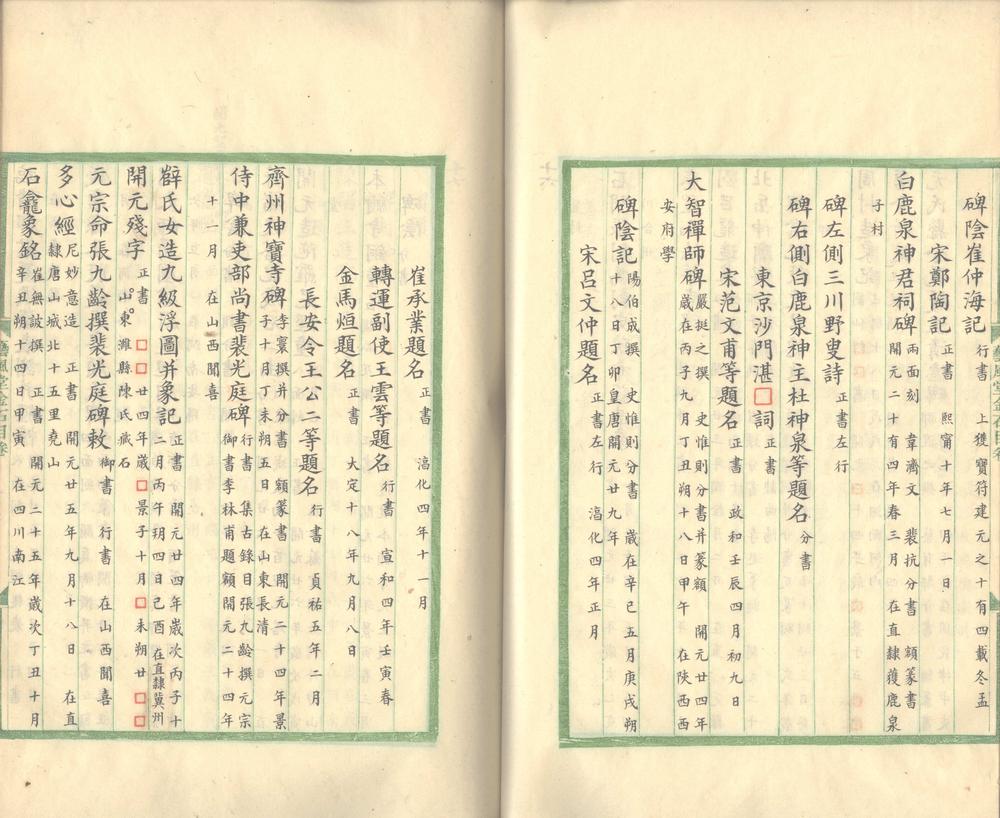 碑陰崔仲海記 行書 上獲寶符建元之十有四載冬孟
宋鄭陶記 正書 熙甯十年七月一日
白鹿泉神君祠碑 兩面刻 韋濟文 裴抗分書 額篆書
開元二十有四年春三月 在直隸獲鹿泉
子村
碑左側三川野叟詩 正書左行
碑右側白鹿泉神主杜神泉等題名 分書
東京沙門湛□詞 正書
宋范文甫等題名 正書 政和壬辰四月初九日
大智禪師碑 嚴挺之撰 史惟則分書并篆額 開元廿四年
歲在丙子九月丁丑朔十八日甲午 在陝西西
安府學
碑陰記 陽伯成撰 史惟則分書 歲在辛巳五月庚戌朔
十八日丁卯皇唐開元廿九年
宋呂文仲題名 正書左行 淊化四年正月
崔承業題名 正書 淊化四年十一月
轉運副使王雲等題名 行書 宣和四年壬寅春
金馬烜題名 正書 大定十八年九月八日
長安令王公二等題名 行書 貞祐五年二月
齊州神寶寺碑 李寰撰并分書 額篆書 開元二十四年景
子十月丁未朔五日 在山東長清
侍中兼吏部尚書裴光庭碑 行書 集古錄目張九齡撰元宗
御書李林甫題額開元二十四年
十一月 在山西聞喜
辥氏女造九級浮圖并象記 正書 開元廿四年歲次丙子十
二月丙午玥四日己酉 在直隸冀州
開元殘字 正書 □□廿四年歲□景子十月□未朔廿□□
山東濰縣陳氏藏石
元宗命張九齡撰裴光庭碑敕 御書 行書 在山西聞喜
多心經 尼妙意造 正書 開元廿五年九月十八日 在直
隸唐山城北十五里堯山
石龕象銘 崔無詖撰 正書 開元二十五年歲次丁丑十月
辛丑朔十四日甲寅 在四川南江
藝風堂金石目卷